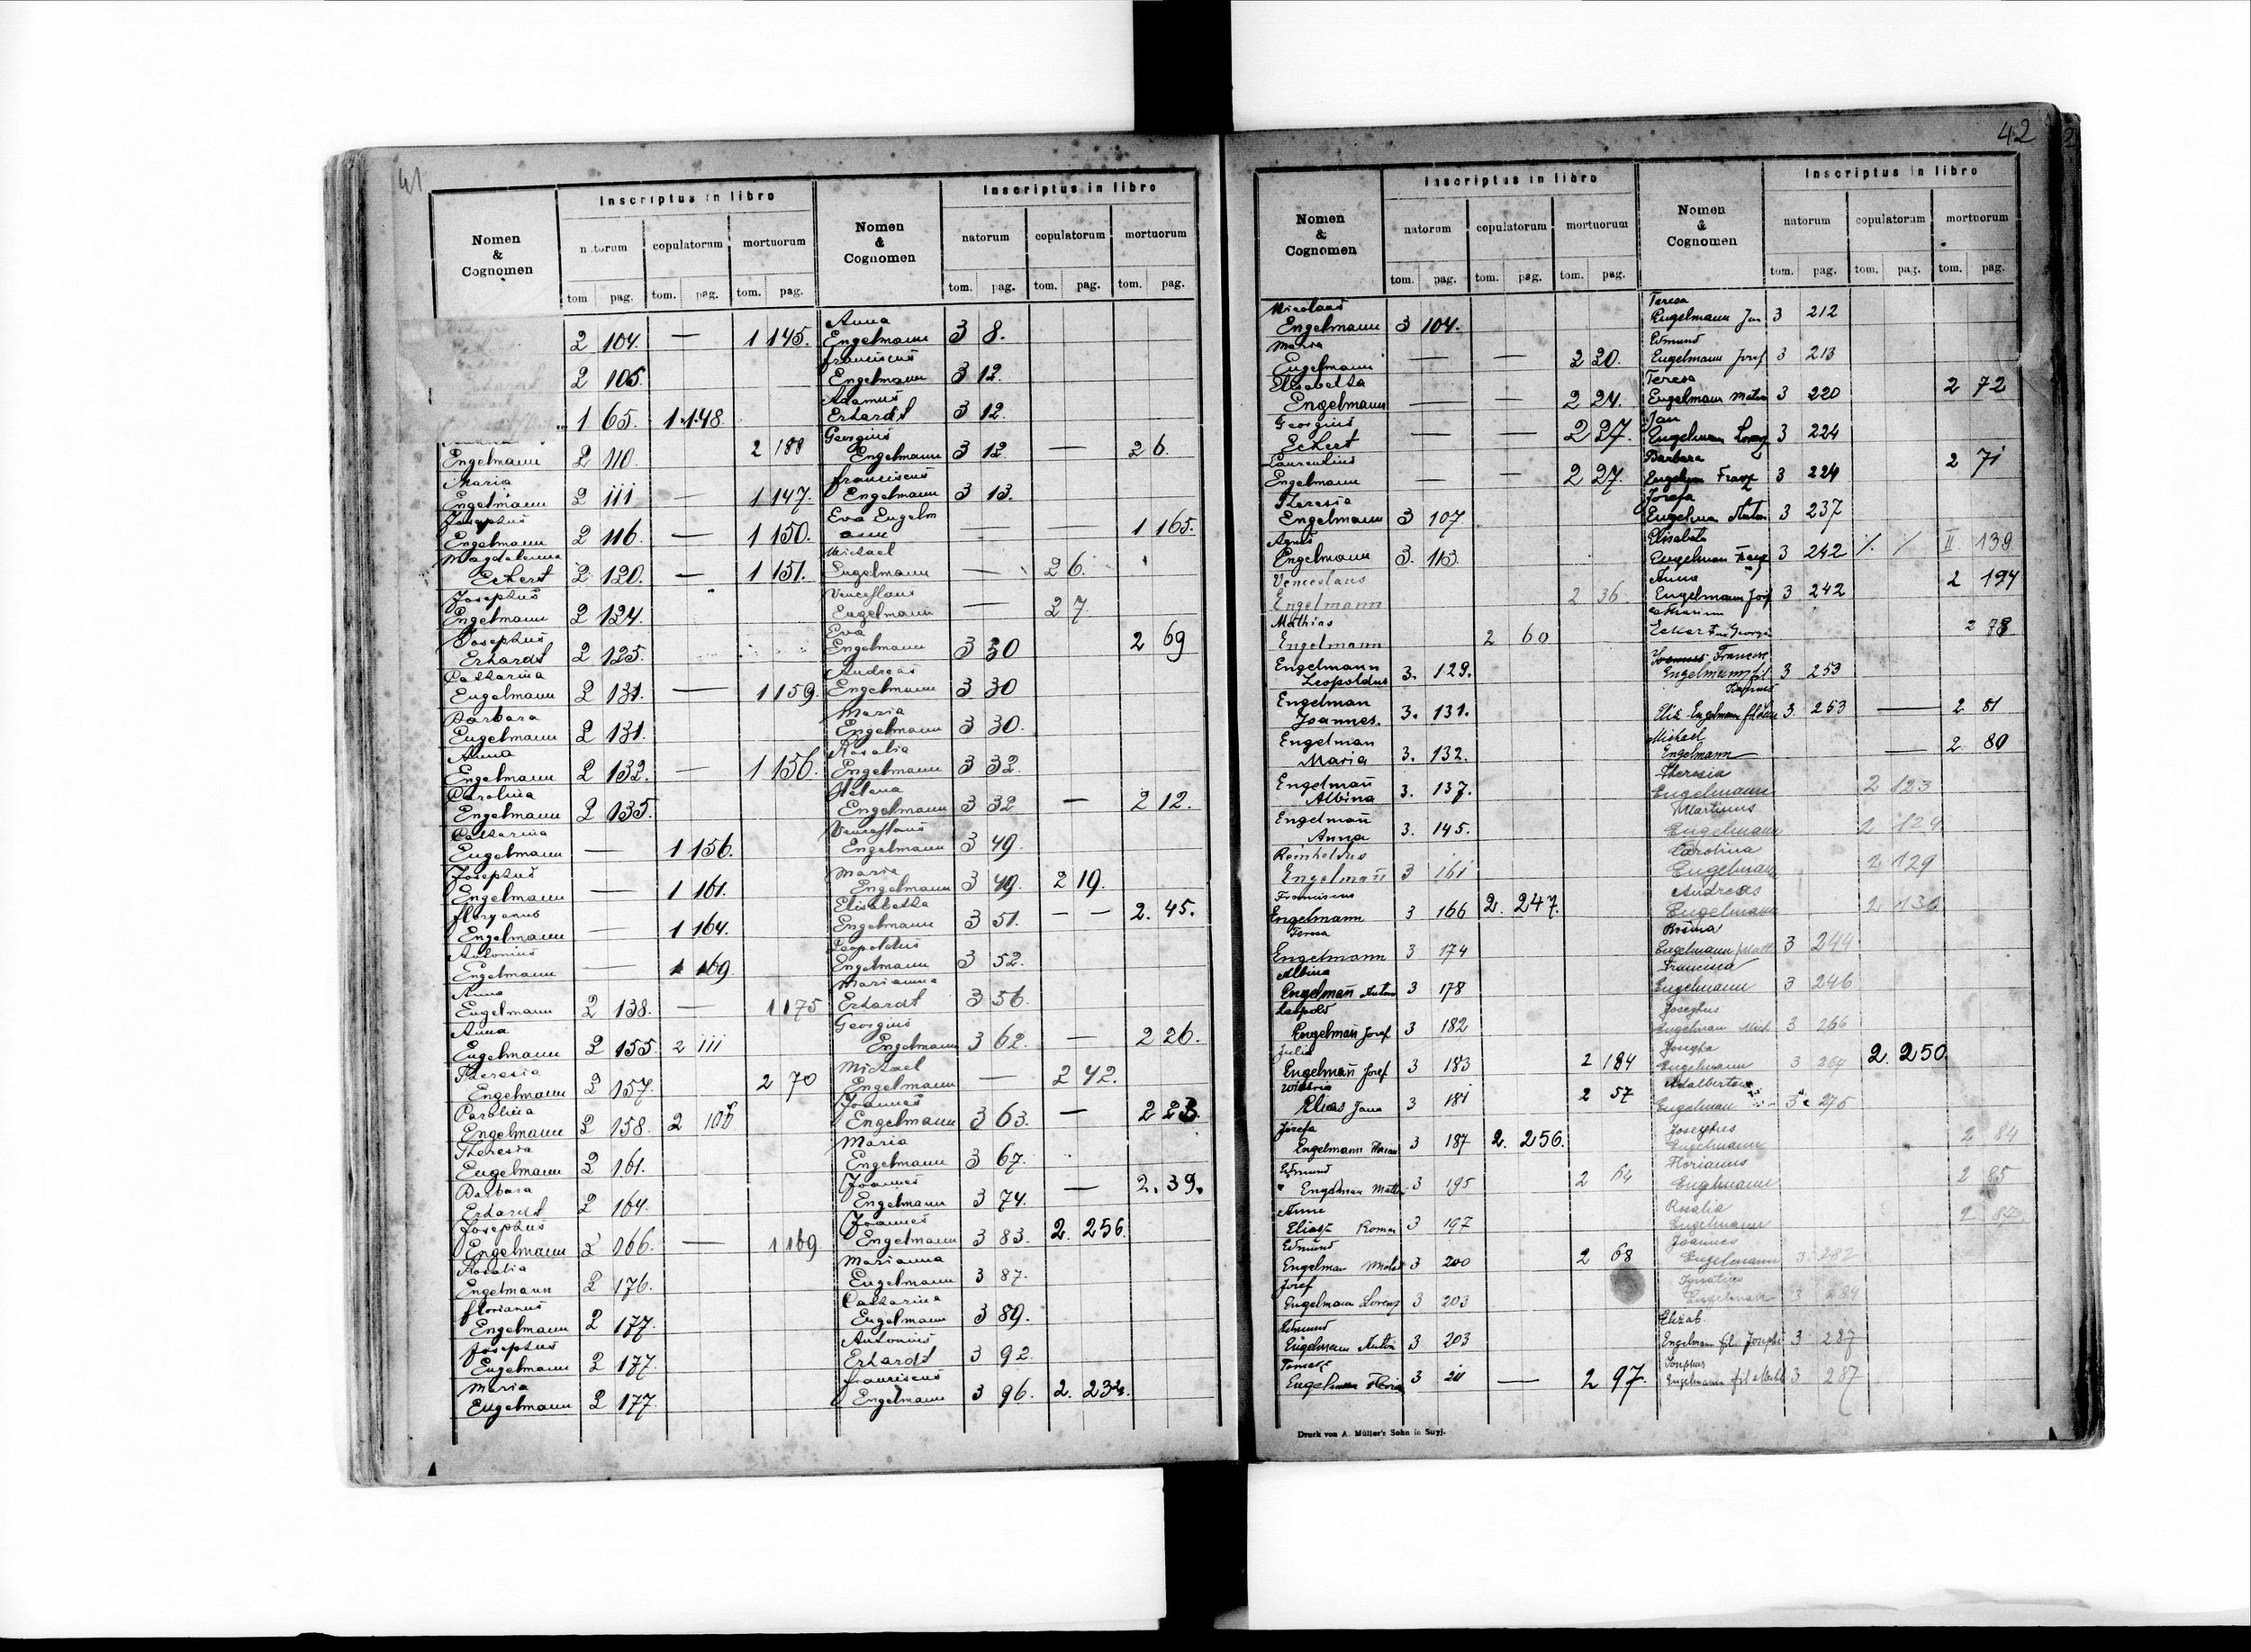 41
Inscriptus in libro
Nomen & Cognomen
natorum copulatorum mortuorum
tom pag. tom. pag. tom. pag.
2 104. — 1 145.
2 105.
1 65. 1 148
Engelmann 2 110. 2 188
Maria
Engelmann 2 111 — 1 147.
Josephus
Engelmann 2 116. — 1 150.
Magdalena
Eckert 2 120. — 1 151.
Josephus
Engelmann 2 124.
Josephus
Erhardt 2 125.
Catharina
Engelmann 2 131. — 1 159.
Barbara
Engelmann 2 131.
Anna
Engelmann 2 132. — 1 156.
Carolina
Engelmann 2 135.
Catharina
Engelmann — 1 156.
Josephus
Engelmann — 1 161.
Floryanus
Engelmann — 1 164.
Antonius
Engelmann — 1 169
Anna
Engelmann 2 138. — 1 175
Anna
Engelmann 2 155. 2 111
Theresia
Engelmann 2 157. 2 70
Carolina
Engelmann 2 158. 2
Theresia
Engelmann 2 161.
Barbara
Erhardt 2 164.
Josephus
Engelmann 2 166. — 1 169
Rosalia
Engelmann 2 176.
Florianus
Engelmann 2 177.
Josephus
Engelmann 2 177.
Maria
Engelmann 2 177.
Inscriptus in libro
Nomen & Cognomen
natorum copulatorum mortuorum
tom. pag. tom. pag. tom. pag.
Anna
Engelmann 3 8.
Franciscus
Engelmann 3 12.
Adamus
Erhardt 3 12.
Georgius
Engelmann 3 12. — 2 6.
Franciscus
Engelmann 3 13.
Eva Engelm
ann — — 1 165.
Michael
Engelmann — 2 6.
Venceslaus
Engelmann — 2 7.
Eva
Engelmann 3 30 2 69
Andreas
Engelmann 3 30
Maria
Engelmann 3 30.
Rosalia
Engelmann 3 32.
Helena
Engelmann 3 32 — 2 12.
Venceslaus
Engelmann 3 49.
Maria
Engelmann 3 49. 2 19.
Elisabetha
Engelmann 3 51. — — 2. 45.
Leopoldus
Engelmann 3 52.
Marianna
Erhardt 3 56.
Georgius
Engelmann 3 62. — 2 26.
Michael
Engelmann — 2 42.
Joannes
Engelmann 3 63. — 2 23
Maria
Engelmann 3 67.
Joannes
Engelmann 3 74. — 2. 39.
Joannes
Engelmann 3 83. 2. 256
Marianna
Engelmann 3 87.
Catharina
Engelmann 3 89.
Antonius
Erhardt 3 92.
Franciscus
Engelmann 3 96. 2. 232.
42
Inscriptus in libro
Nomen & Cognomen
natorum copulatorum mortuorum
tom. pag. tom. pag. tom. pag.
Nicolaus
Engelmann 3 104.
Maria
Engelmann — — 2 20.
Elisabetha
Engelmann — — 2 24.
Georgius
Eckert — — 2 27.
Laurentius
Engelmann — — 2 27.
Theresia
Engelmann 3 107
Agnes
Engelmann 3. 113.
Venceslaus
Engelmann 2 36
Mathias
Engelmann 2 60
Engelmann
Leopoldus 3. 129.
Engelman
Joannes. 3. 131.
Engelman
Maria 3. 132.
Engelman̄
Albina 3. 137.
Engelman̄
Anna 3. 145.
Reinholdus
Engelman̄ 3 161
Franciscus
Engelmann 3 166 2. 247.
Teresa
Engelmann 3 174
Albina
Engelman̄ Anton 3 178
Leopold
Engelman̄ Josef 3 182
Julia
Engelman̄ Josef 3 183 2 184
Elias Jana 3 181 2 57
Józefa
Engelmann Florian 3 187 2. 256.
Edmund
Engelman 3 195 2 64
Anne
Eliasz Roman 3 197
Edmund
Engelman Michał 3 200 2 68
Josef
Engelmann Lorenz 3 203
Edmund
Engelmann Anton 3 203
Tomasz
Engelmann 3 211 — 2 97.
Inscriptus in libro
Nomen & Cognomen
natorum copulatorum mortuorum
tom. pag. tom. pag. tom. pag.
Teresa
Engelmann Jan 3 212
Edmund
Engelmann Josef 3 213
Teresa
Engelmann 3 220 2 72
Jan
Engelman Lorenz 3 224
Barbara
Engelman Franz 3 224 2 71
Josefa
Engelman Anton 3 237
Elisabeta
Engelman Franz 3 242 ⁒ ⁒ II 139
Anna
Engelmann Josef 3 242 2 194
Catharina
Eckert 2 78
Engelmann fil. 3 253
Engelmann 3. 253 — 2 81
Michael
Engelmann — 2 80
Theresia
Engelmann 2 123
Martinus
Engelmann 2 124
Carolina
Engelmann 2 129
Andreas
Engelmann 2 130
Rosina
Engelmann Matt 3 244
Francisca
Engelmann 3 246
Josephus
Engelman Mich 3 266
Josepha
Engelmann 3 269 2. 250.
Adalbertus
Engelman 3 275
Josephus
Engelmann 2 84
Florianus
Englmann 2 85
Rosalia
Engelmann 2
Joannes
Engelmann 3 282
Ignatius
Engelman 3 284
Elizab.
Engelmann fil. Josephi 3 287
Josephus
Engelmann fil 3 287
Druck von A. Müller's Sohn in Stryj.